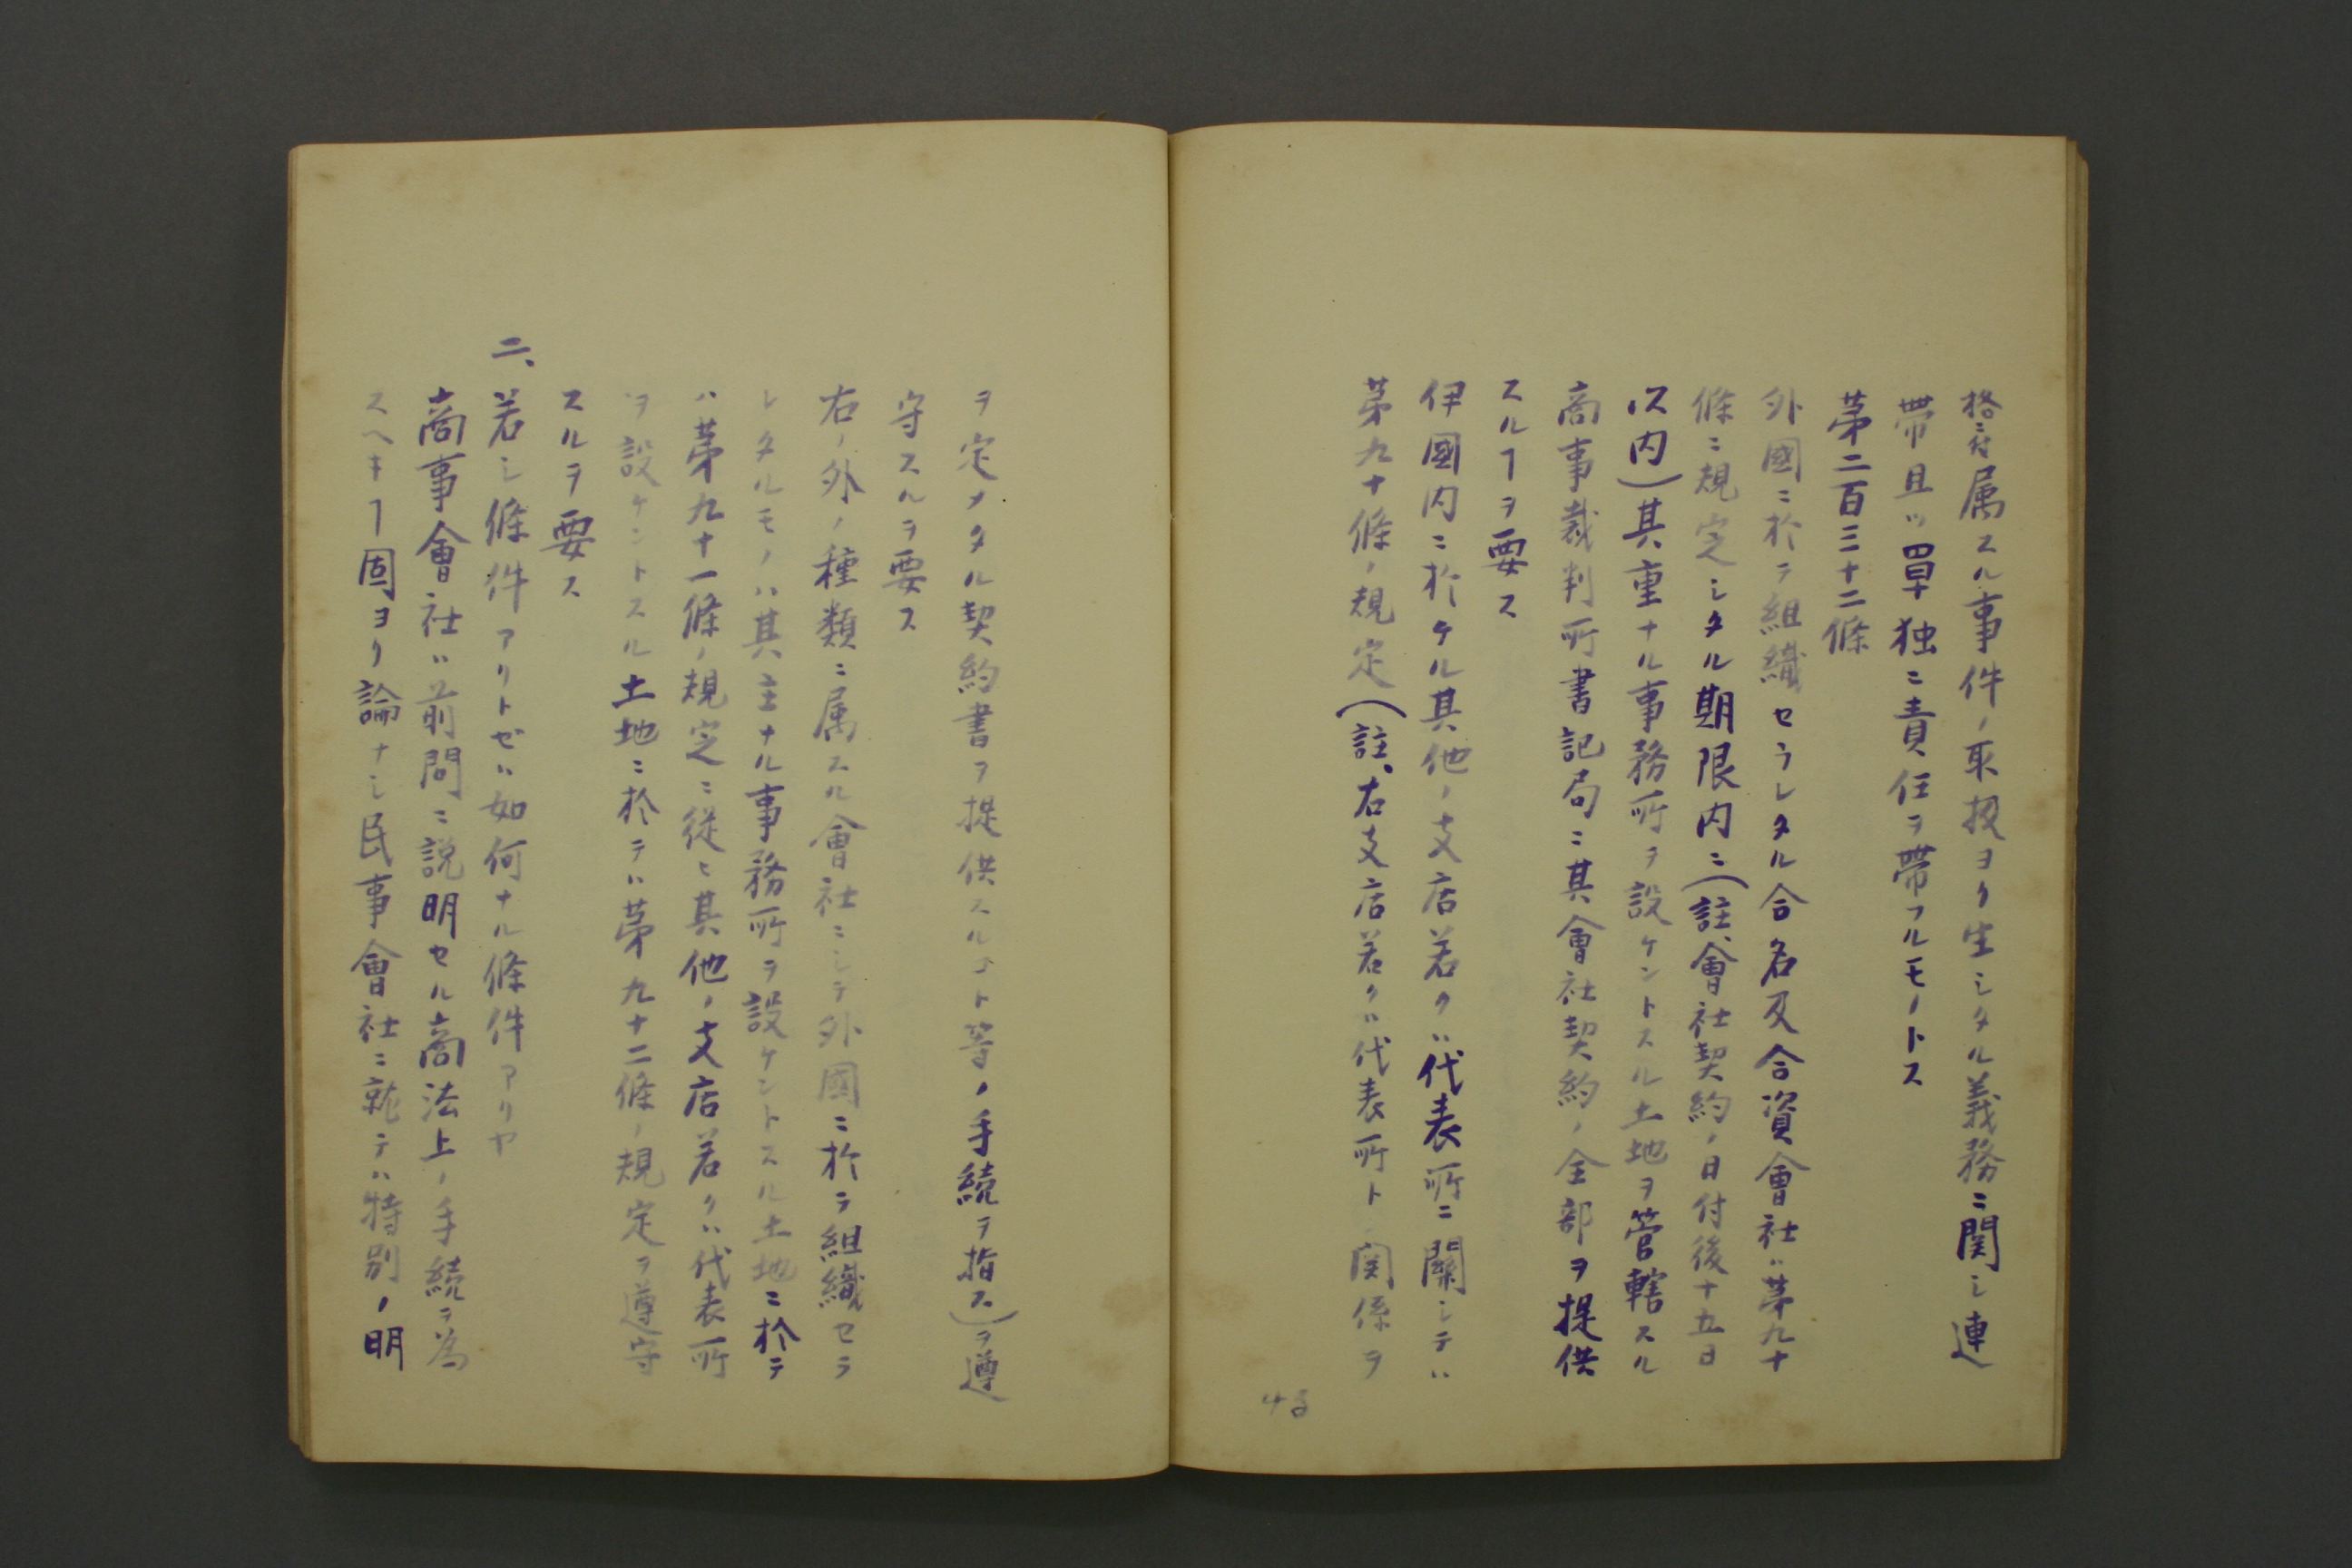 格ニ付属スル事件ノ取扱ヨリ生シタル義務ニ関シ連
帶且ツ單独ニ責任ヲ帶フルモノトス
第二百三十二條
外國ニ於テ組織セラレタル合名及合資會社ハ第九十
條ニ規定シタル期限内ニ(註、會社契約ノ日付後十五日
以内)其重ナル事務所ヲ設ケントスル土地ヲ管轄スル
商事裁判所書記局ニ其會社契約ノ全部ヲ提供
スルヿヲ要ス
伊國内ニ於ケル其他ノ支店若クハ代表所ニ關シテハ
第九十條ノ規定(註、右支店若クハ代表所ト関係ヲ
43
ヲ定メタル契約書ヲ提供スルコト等ノ手続ヲ指ス)ヲ遵
守スルヲ要ス
右ノ外ノ種類ニ属スル會社ニシテ外國ニ於テ組織セラ
レタルモノハ其主ナル事務所ヲ設ケントスル土地ニ於テ
ハ第九十一條ノ規定ニ従ヒ其他ノ支店若クハ代表所
ヲ設ケントスル土地ニ於テハ第九十二條ノ規定ヲ遵守
スルヲ要ス
二、若シ條件アリトセバ如何ナル條件アリヤ
商事會社ハ前問ニ説明セル商法上ノ手続ヲ為
スヘキヿ固ヨリ論ナシ民事會社ニ就テハ特別ノ明